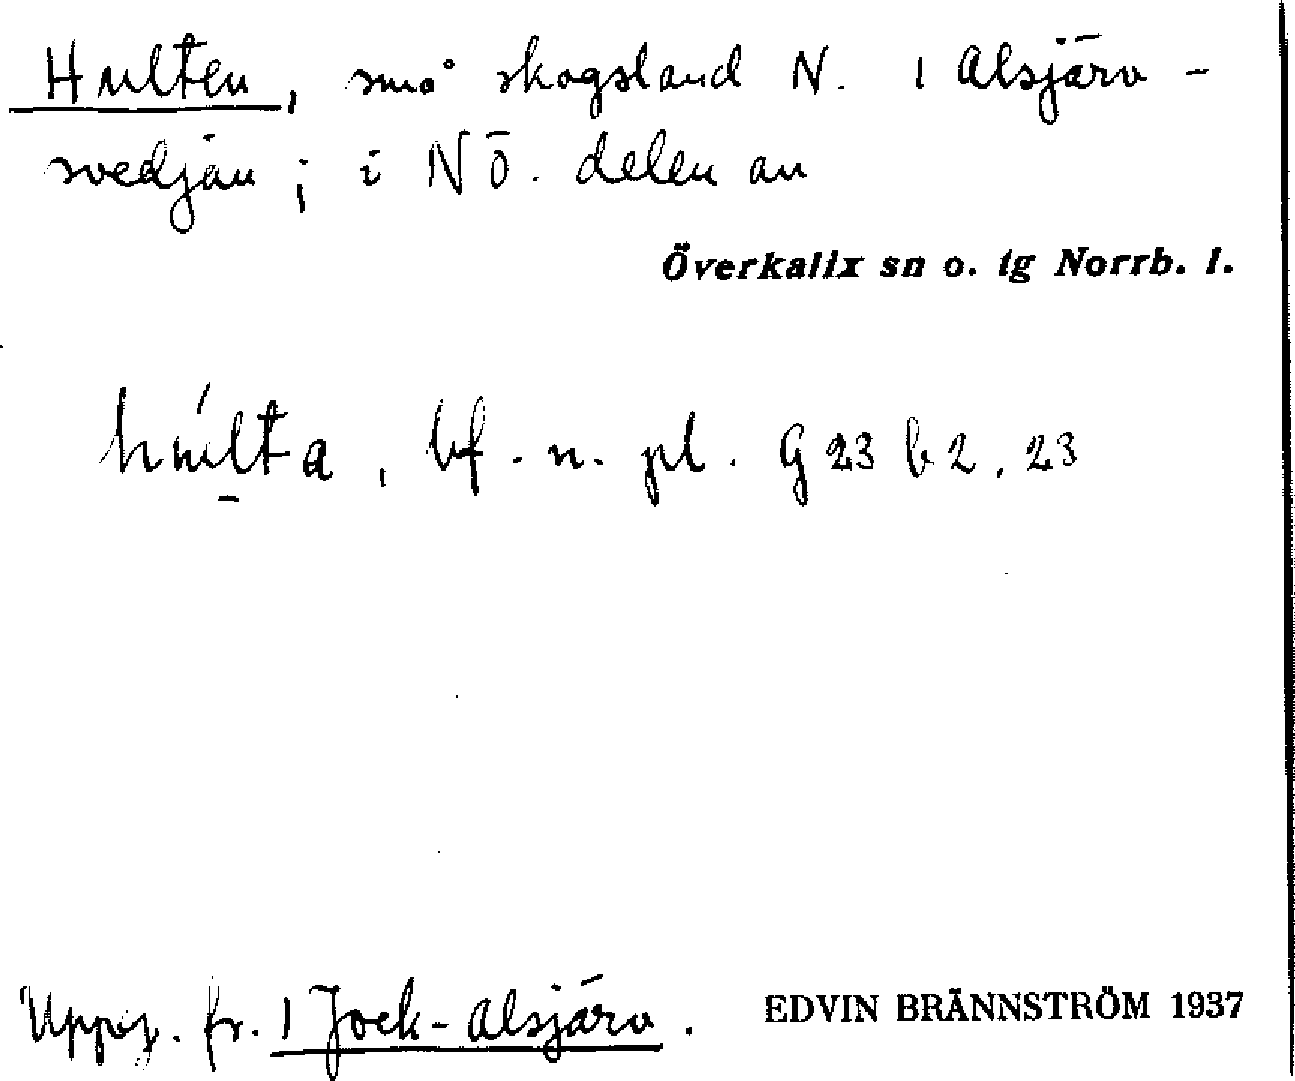 Hulten, små skogsland N. i Alsjärv-
svedjan; i NÖ. delen av
Överkalix sn o. tg Norrb. l.
húlta, bf. n. pl. G 23 b 2, 23
Uppg. fr. 1 Jock-Alsjärv.
EDVIN BRÄNNSTRÖM 1937